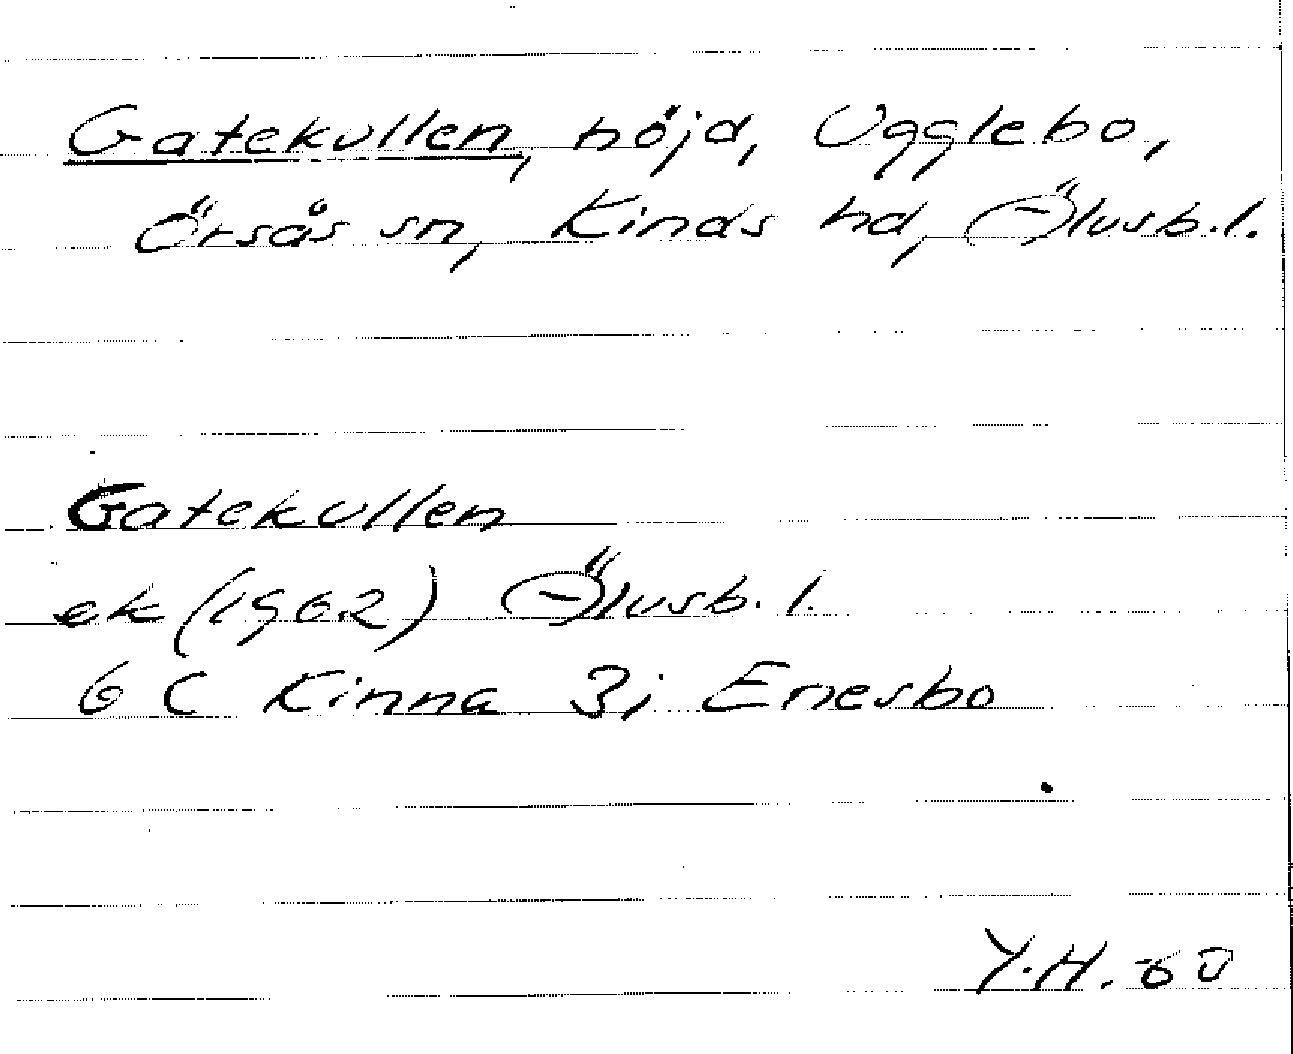 Gatekullen, höjd, Ugglebo,
Örsås sn, Kinds hd, Älvsb.l.
Gatekullen
ek (1962) Älvsb.l.
6 C Kinna 3j Enesbo
Y.H. -60